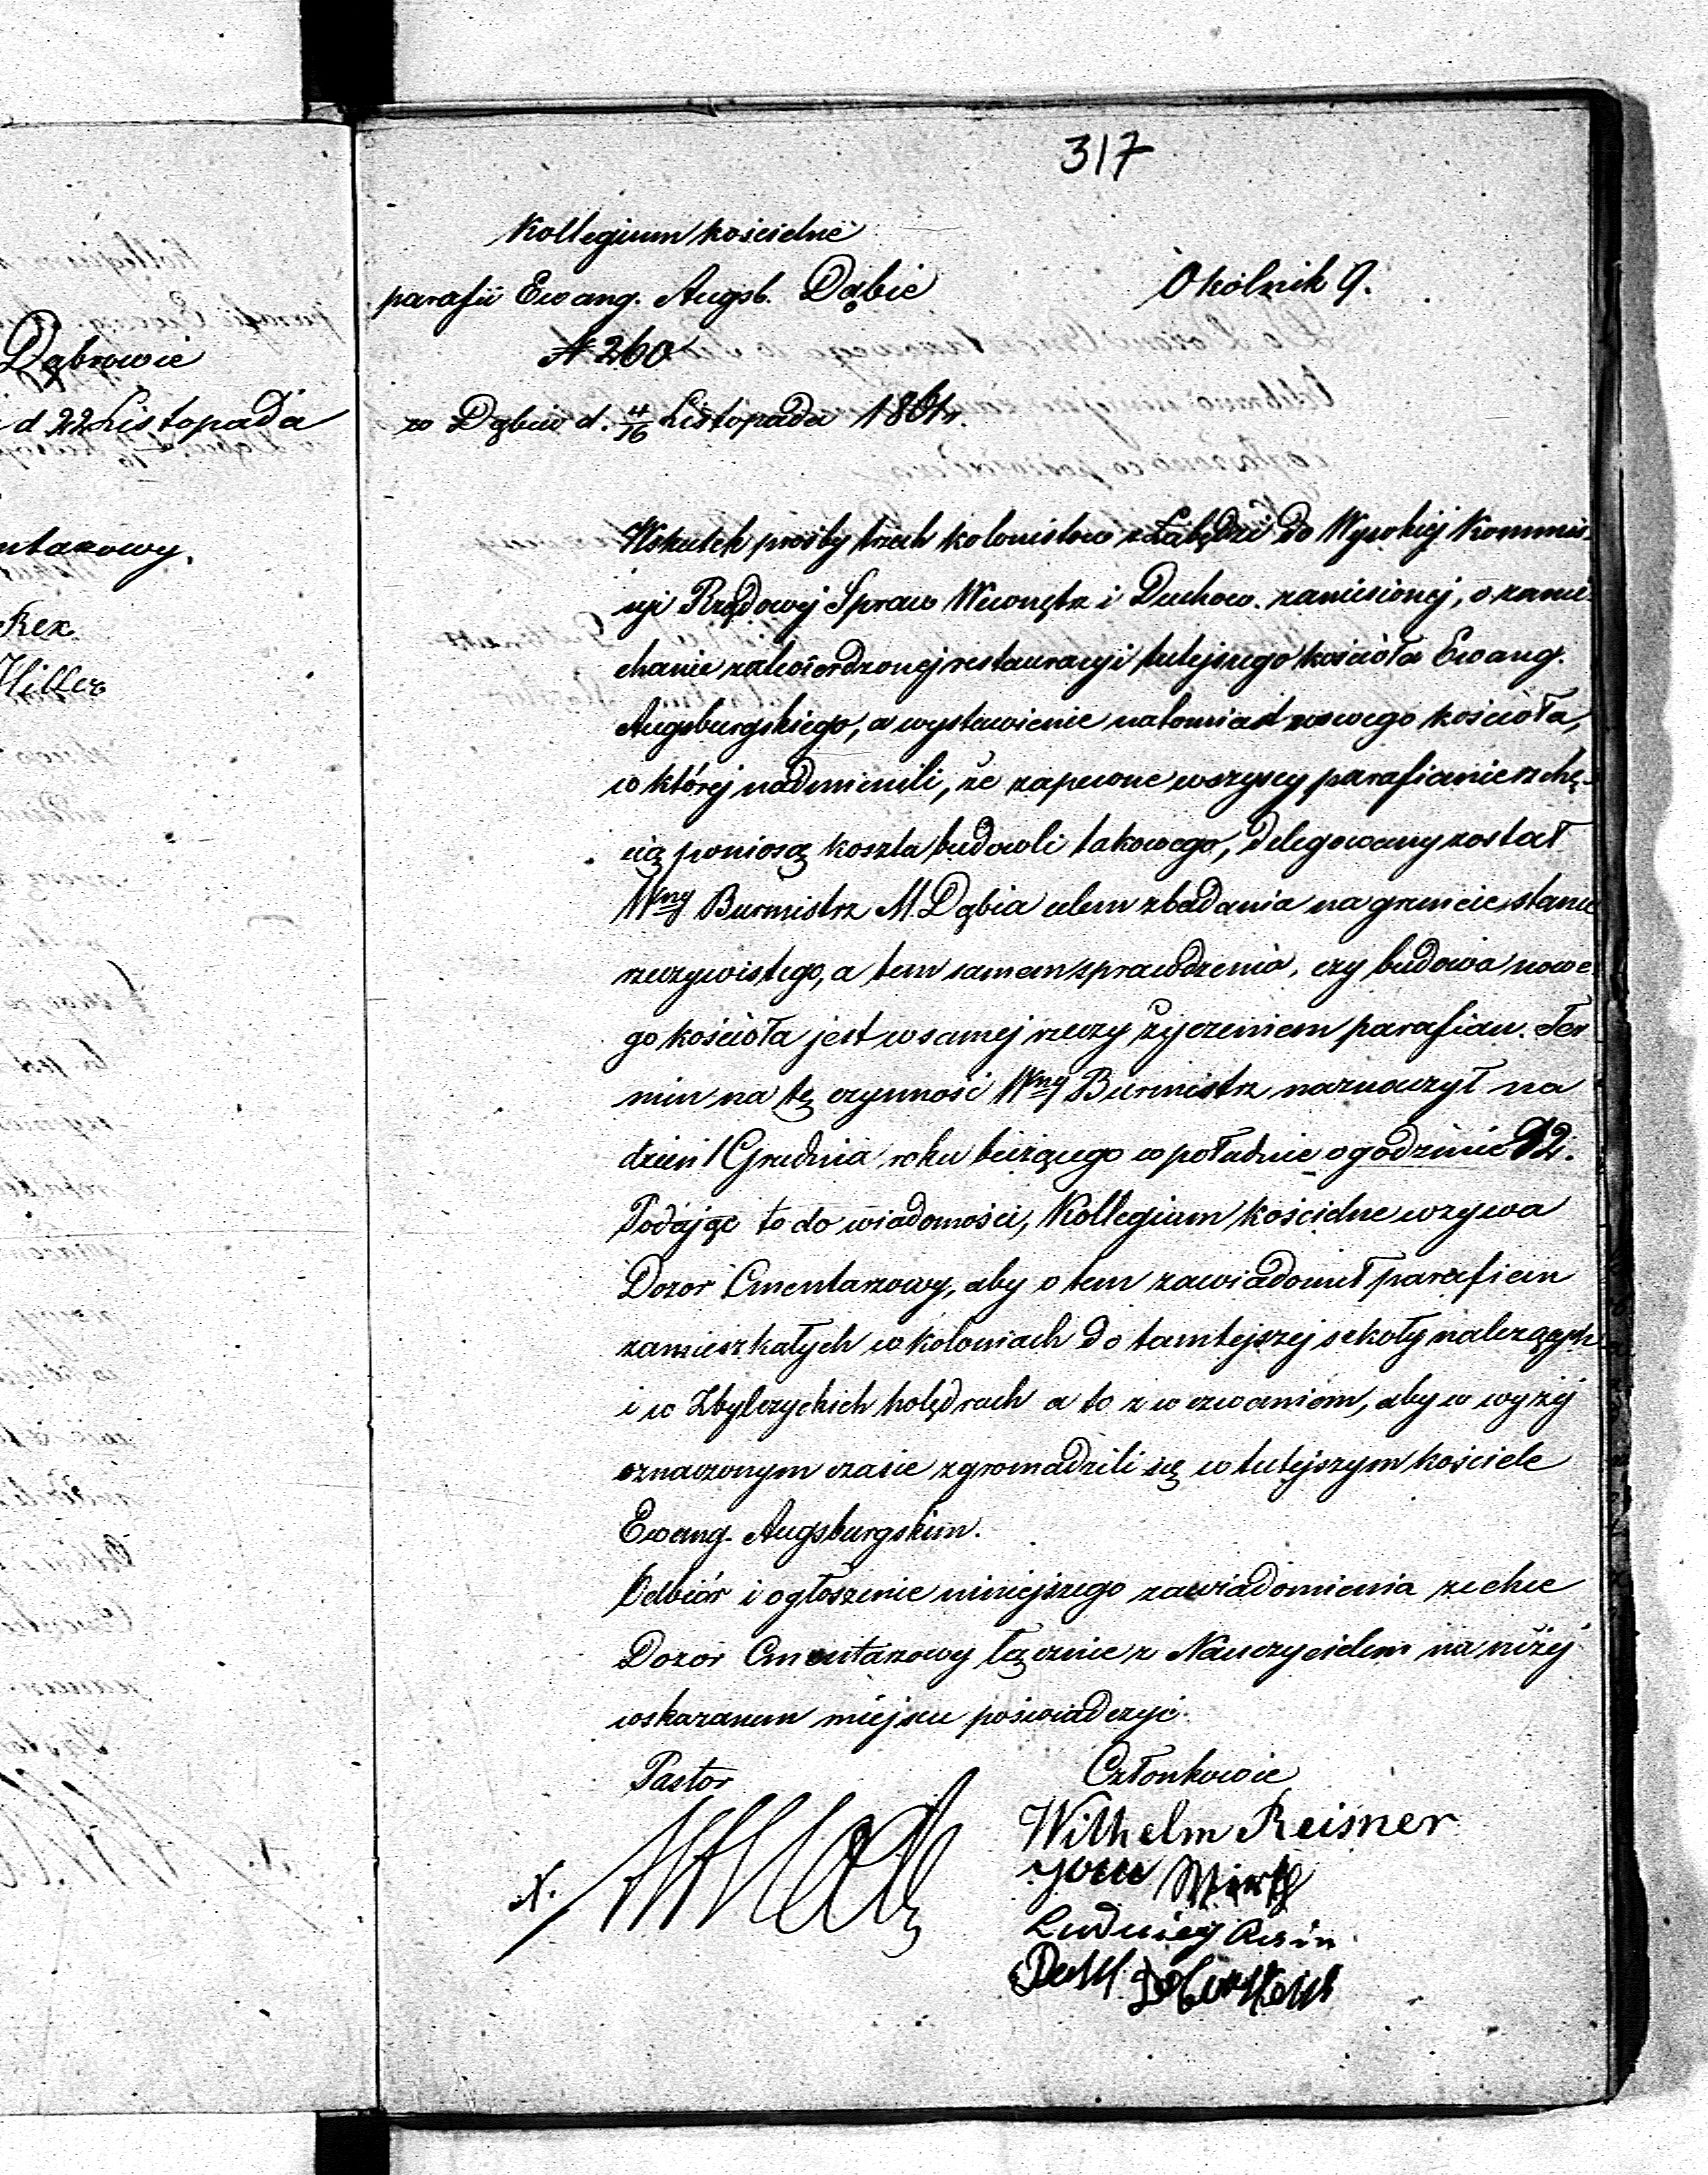 317
Kollegium kościelne
parafii Ewang. Augsb. Dąbie
Okólnik 9.
N 260
w Dąbiu d. 4/16 Listopada 1861 r.
Dąbrowie
d 22 Listopada
ntarzowy.
Rex
Hiller
Wskutek prośby trzech kolonistów z Łabędzi do Wysokiej Kommis-
syi Rządowej Spraw Wewnętrz i Duchow. zaniesionej, o zanie-
chanie zatwierdzonej restauracyi tutejszego kościoła Ewang.
Augsburgskiego, a wystawienie natomiast nowego kościoła,
w której nadmienili, że zapewne wszyscy parafianie z chę-
cią poniosą koszta budowli takowego, delegowany został
Wny Burmistrz M. Dąbia celem zbadania na gruncie stanu
rzeczywistego, a tem samem sprawdzenia, czy budowa nowe-
go kościoła jest w samej rzeczy życzeniem parafian. Ter
min na tę czynność Wny Burmistrz naznaczył na
dzień 1 Grudnia roku bieżącego w południe o godzinie 12.
Podając to do wiadomości, Kollegium kościelne wzywa
Dozór Cmentarzowy, aby o tem zawiadomił parafian
zamieszkałych w koloniach do tamtejszej szkoły należących
i w Zbylczyckich holędrach a to z wezwaniem, aby w wyżej
oznaczonym czasie zgromadzili się w tutejszym kościele
Ewang. Augsburgskim.
Odbiór i ogłoszenie niniejszego zawiadomienia zechce
Dozór Cmentarzowy łącznie z Nauczycielem na niżej
wskazanem miejscu poświadczyć.
Pastor
Członkowie
Wilhelm Reisner
Wirth
Ludwieg